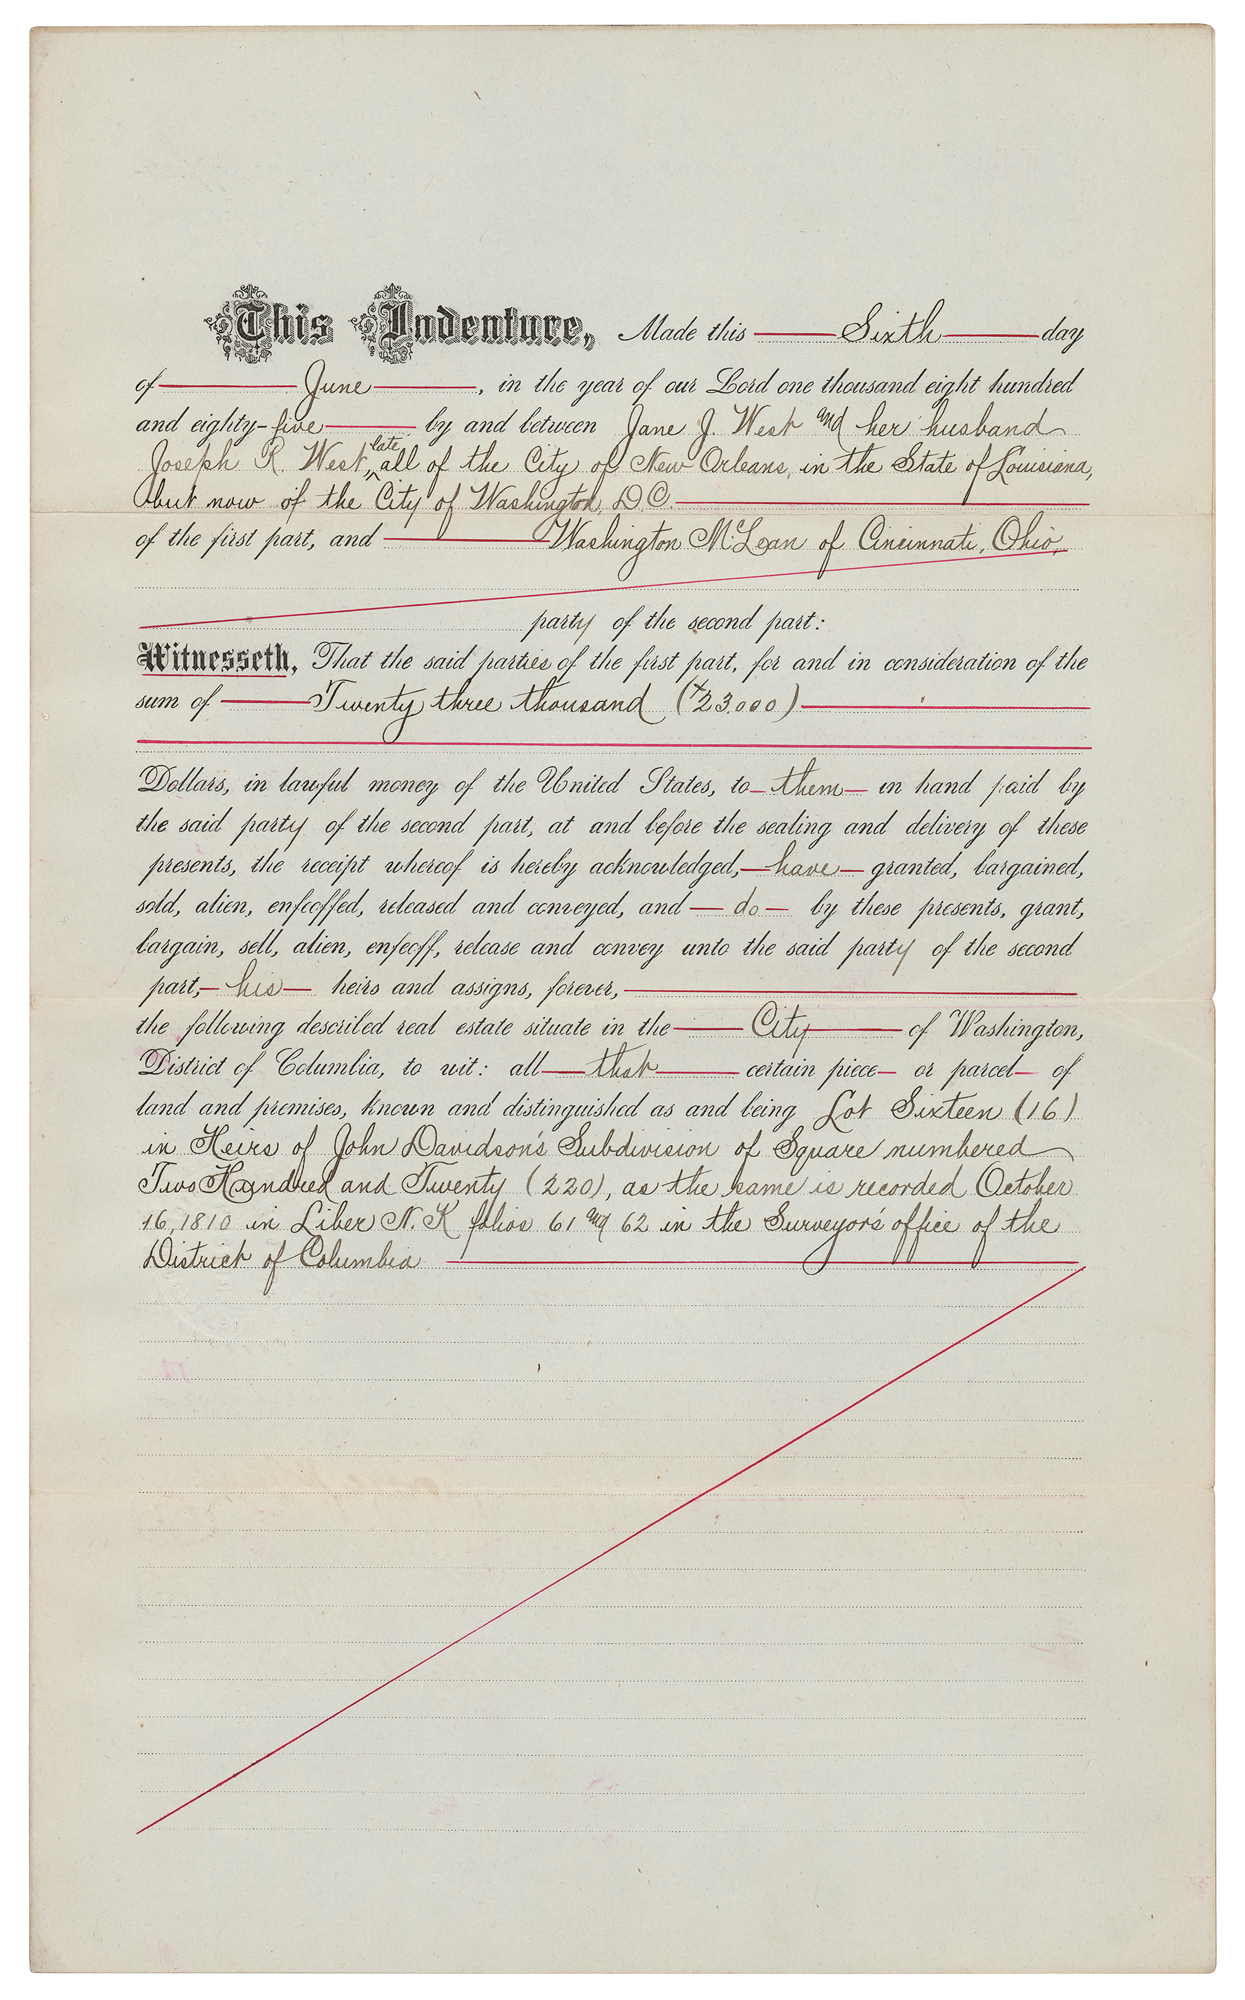 This Indenture, Made this Sixth day
of June, in the year of our Lord one thousand eight hundred
and eighty-five by and between Jane J. West and her husband
Joseph R. West, late all of the City of New Orleans, in the State of Louisiana,
but now of the City of Washington, D.C.
of the first part, and Washington McLean of Cincinnati, Ohio,
party of the second part:
Witnesseth, That the said parties of the first part, for and in consideration of the
sum of Twenty three thousand ($23.000)
Dollars, in lawful money of the United States, to them in hand paid by
the said party of the second part, at and before the sealing and delivery of these
presents, the receipt whereof is hereby acknowledged, have granted, bargained,
sold, alien, enfeoffed, released and conveyed, and do by these presents, grant,
bargain, sell, alien, enfeoff, release and convey unto the said party of the second
part, his heirs and assigns, forever,
the following described real estate situate in the City of Washington,
District of Columbia, to wit: all that certain piece or parcel of
land and premises, known and distinguished as and being Lot Sixteen (16)
in Heirs of John Davidson's Subdivision of Square numbered
Two Hundred and Twenty (220), as the same is recorded October
16, 1810 in Liber N. K folios 61 and 62 in the Surveyor's office of the
District of Columbia